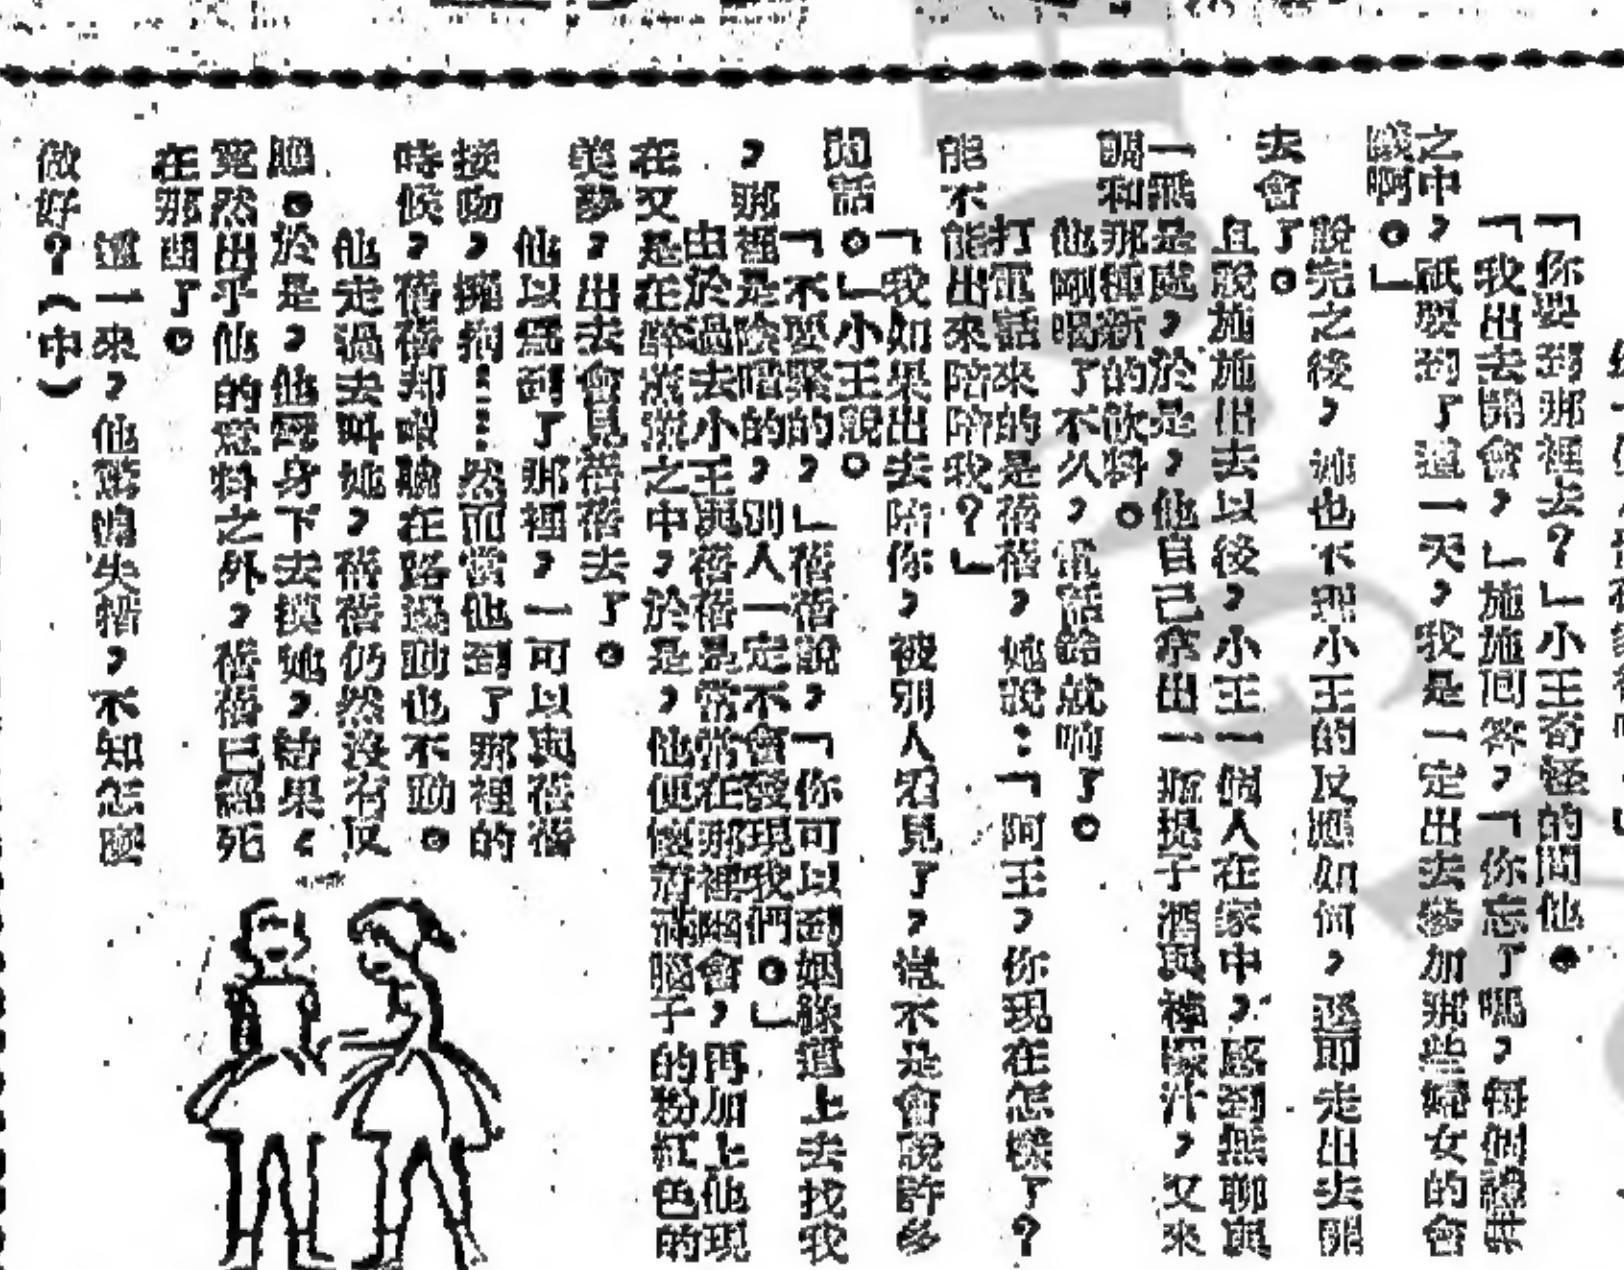 「你要到那裡去？」小王奇怪的問他。
「我出去開會，」施施回答，「你忘了嗎，每個禮拜
之中，祇要到了這一天，我是一定出去參加那些婦女的會
議啊。」
說完之後，她也不理小王的反應如何，逕即走出去開
去會了。
且說施施出去以後，小王一個人在家中，感到無聊與
一無是處，於是，他自己拿出一瓶提子酒與檸檬汁，又來
調和那種新的飲料。
他剛喝了不久，電話鈴就响了。
打電話來的是蓓蓓，她說：「阿王，你現在怎樣了？
能不能出來陪陪我？」
「我如果出去陪你，被別人看見了，豈不是會說許多
閒話。」小王說。
「不要緊的，」蓓蓓說，「你可以到姻緣道上去找我
，那裡是陰暗的，別人一定不會發現我們。」
由於過去小王與蓓蓓是常常在那裡幽會，再加上他現
在又是在醉濛濛之中，於是，他便懷着滿腦子的粉紅色的
美夢，出去會見蓓蓓去了。
他以為到了那裡，一可以與蓓蓓
接吻，擁抱……然而當他到了那裡的
時候，蓓蓓却喂躺在路邊動也不動。
他走過去叫她，蓓蓓仍然沒有反
應。於是，他彎身下去摸她，結果，
竟然出乎他的意料之外，蓓蓓已經死
在那曲了。
這一來，他驚惶失措，不知怎麼
做好？（中）